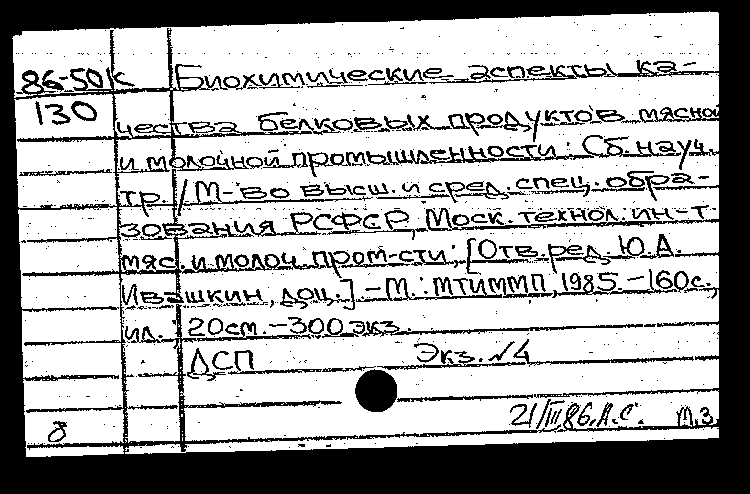 86-50к Биохимические аспекты ка-
130 чества белковых продуктов мясной
и молочной промышленности: Сб. науч.
тр. / М-во высш. и сред. спец. обра-
зования РСФСР, Моск. технол. ин-т
мяс. и молоч. пром-сти; [Отв. ред. Ю.А.
Ивашкин, доц.]. - М.: МТИММП, 1985. - 160 с.,
ил.; 20 см. - 300 экз.
ДСП Экз. №4
21/III 86. А.С. М.З.
8